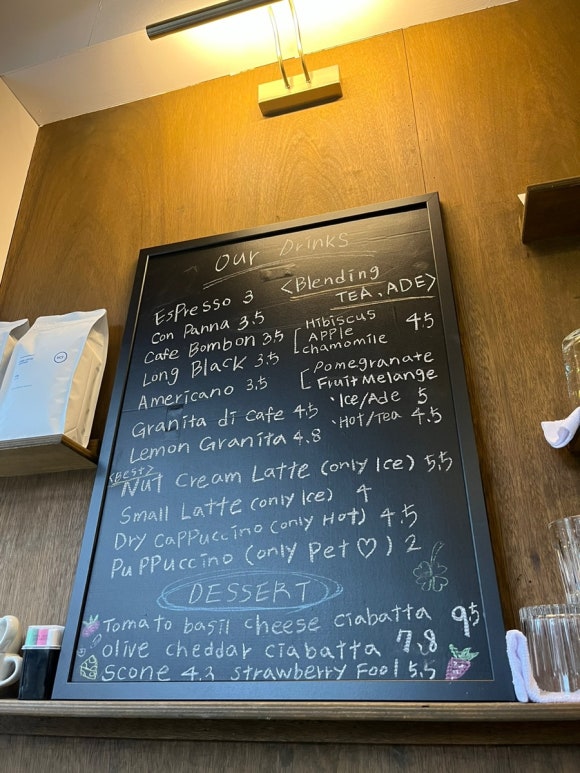 Our Drinks
Espresso 3
Con Panna 3.5
Cafe Bombon 3.5
Long Black 3.5
Americano 3.5
Granita di cafe 4.5
Lemon Granita 4.8
<Blending
TEA, ADE>
Hibiscus
APPle
chamomile 4.5
Pomegranate
Fruit Melange
·Ice/Ade 5
·Hot/Tea 4.5
<Best>
Nut Cream Latte (only Ice) 5.5
Small Latte (only Ice) 4
Dry cappuccino (only Hot) 4.5
PuPPuccino (only pet ♡) 2
DESSERT
Tomato basil cheese ciabatta 9.5
olive cheddar ciabatta 7.8
Scone 4.3 strawberry Fool 5.5